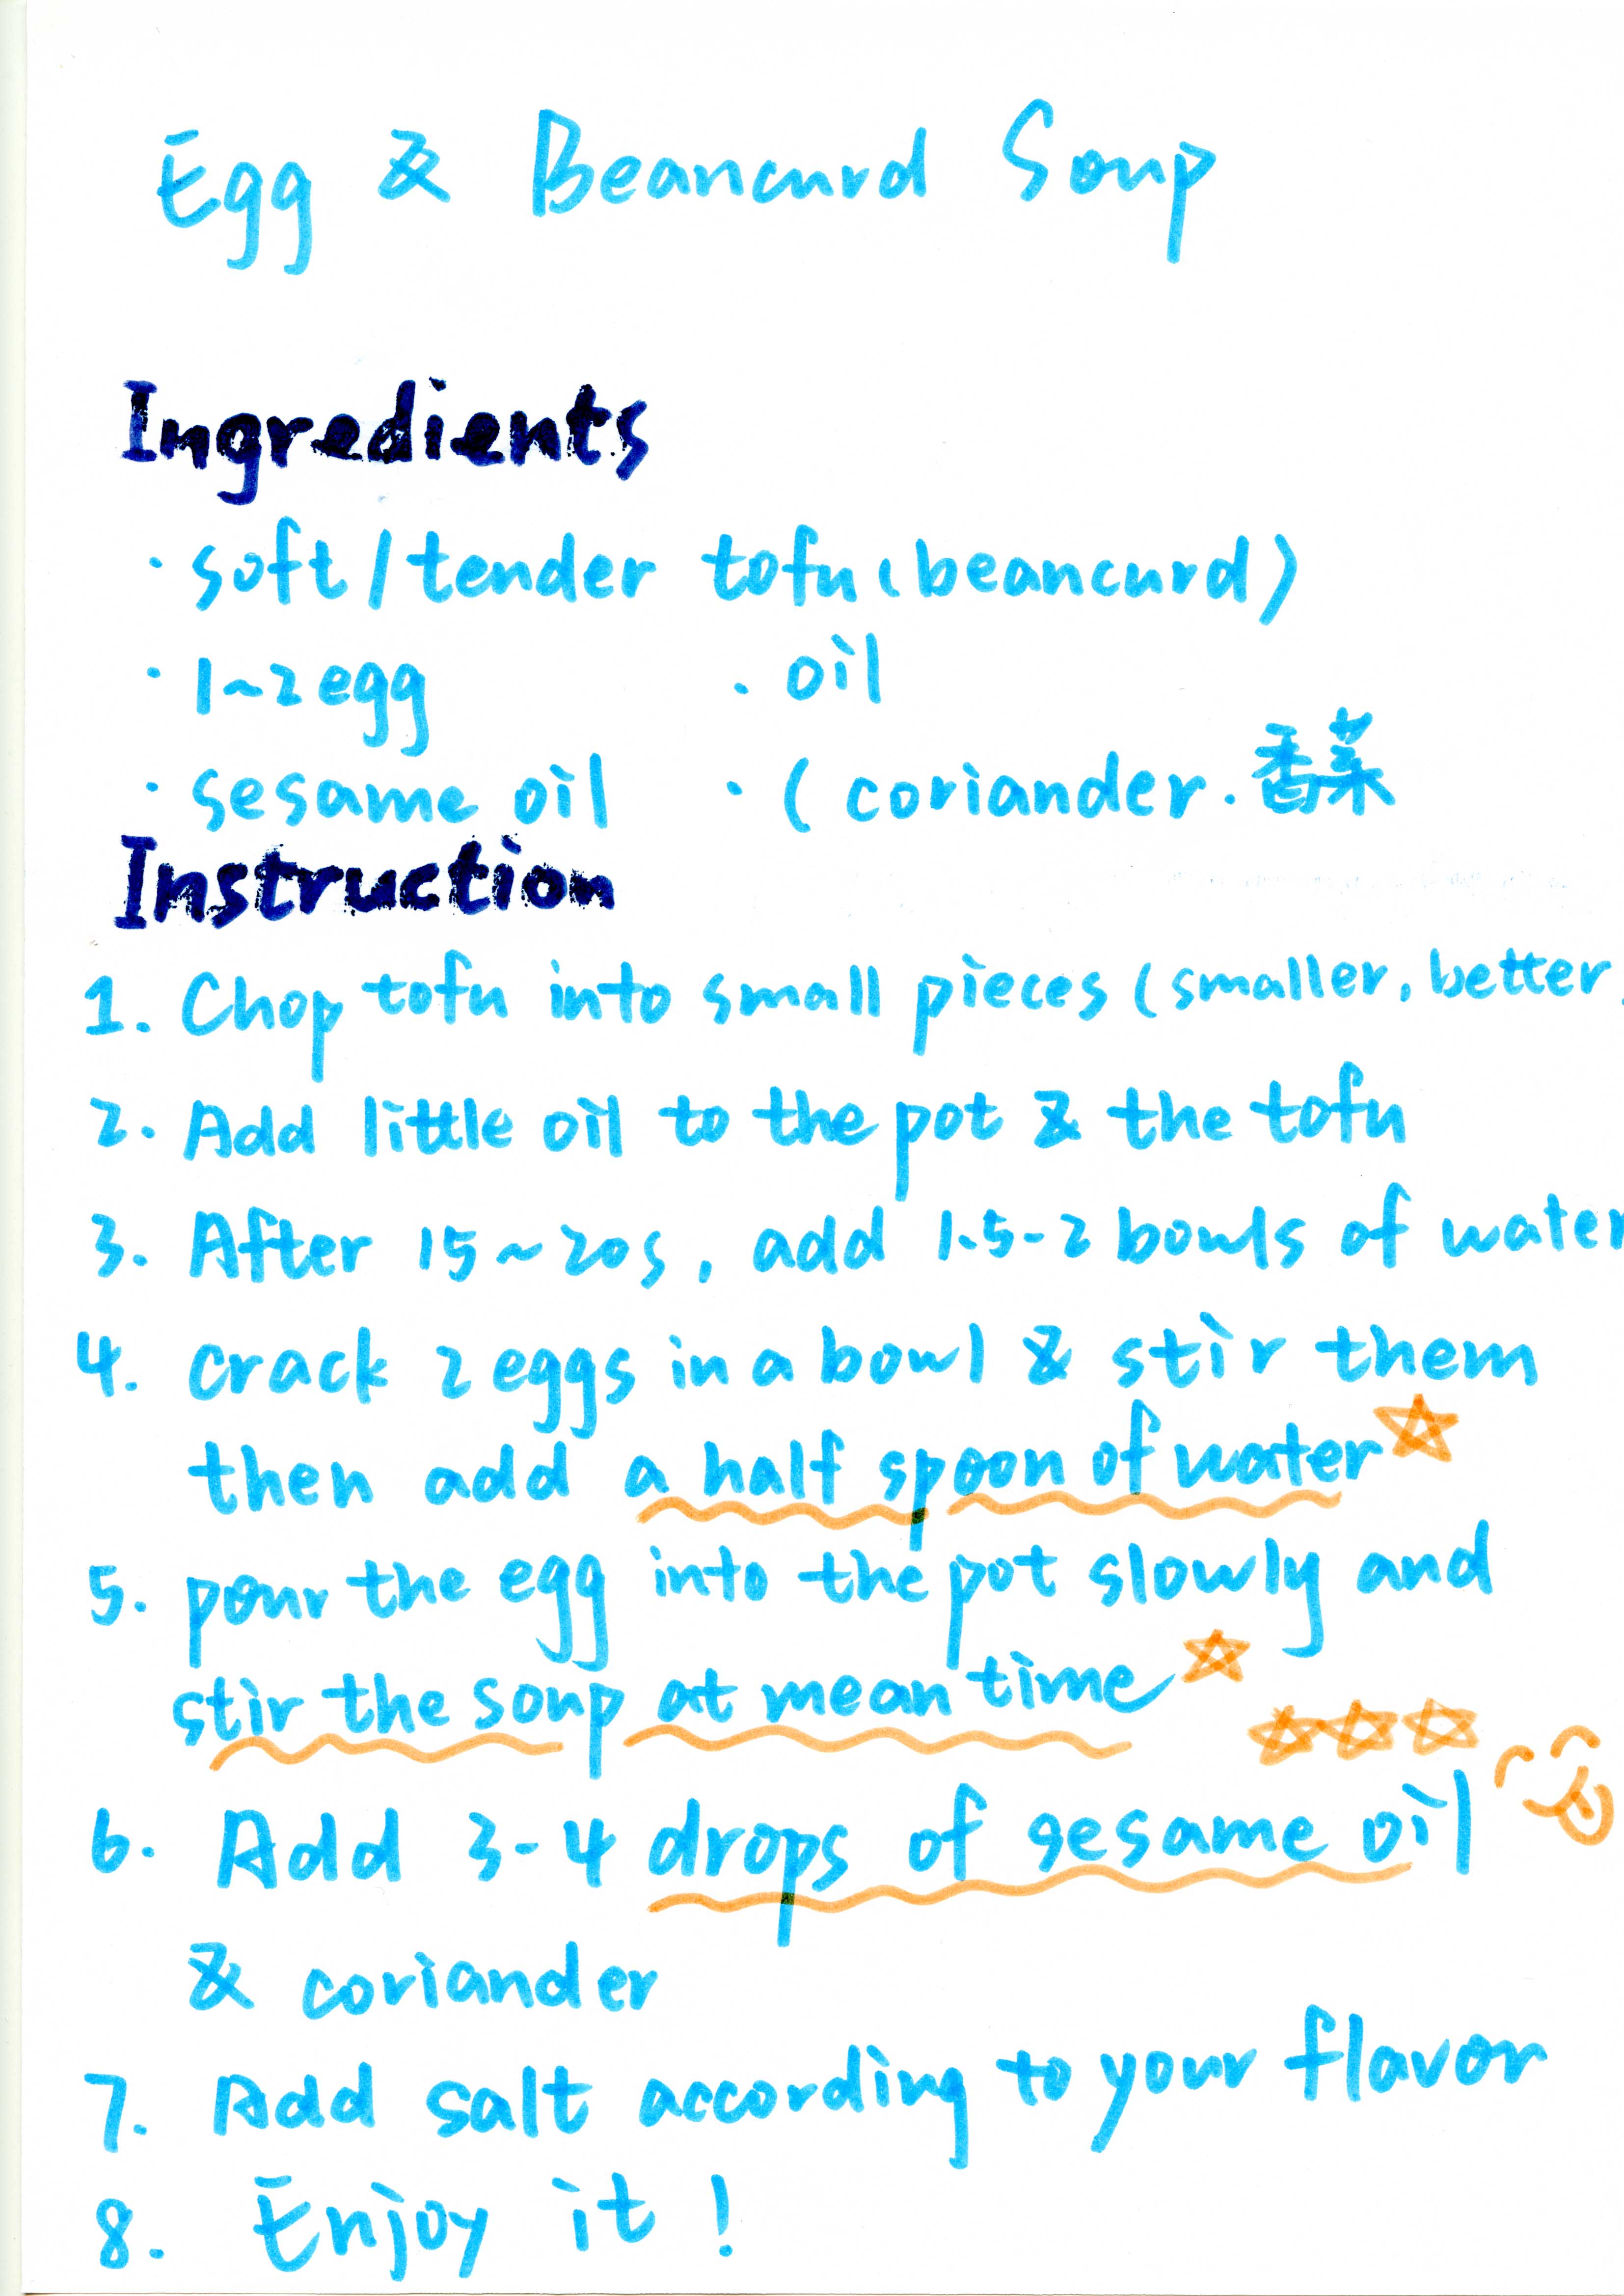 Egg & Beancurd Soup
Ingredients
· soft/tender tofu (beancurd)
· 1~2 egg · oil
· sesame oil · (coriander. 香菜
Instruction
1. Chop tofu into small pieces (smaller, better.
2. Add little oil to the pot & the tofu
3. After 15~20s, add 1.5-2 bowls of water
4. crack 2 eggs in a bowl & stir them
then add a half spoon of water
5. pour the egg into the pot slowly and
stir the soup at mean time
6. Add 3-4 drops of sesame oil
& coriander
7. Add salt according to your flavor
8. Enjoy it!